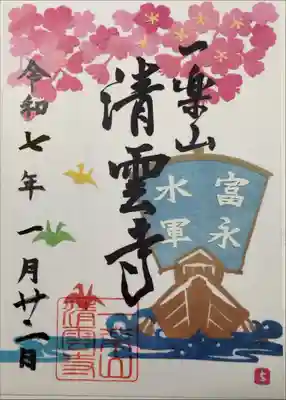 一乗山
清雲寺
富永
水軍
令和七年一月廿一日